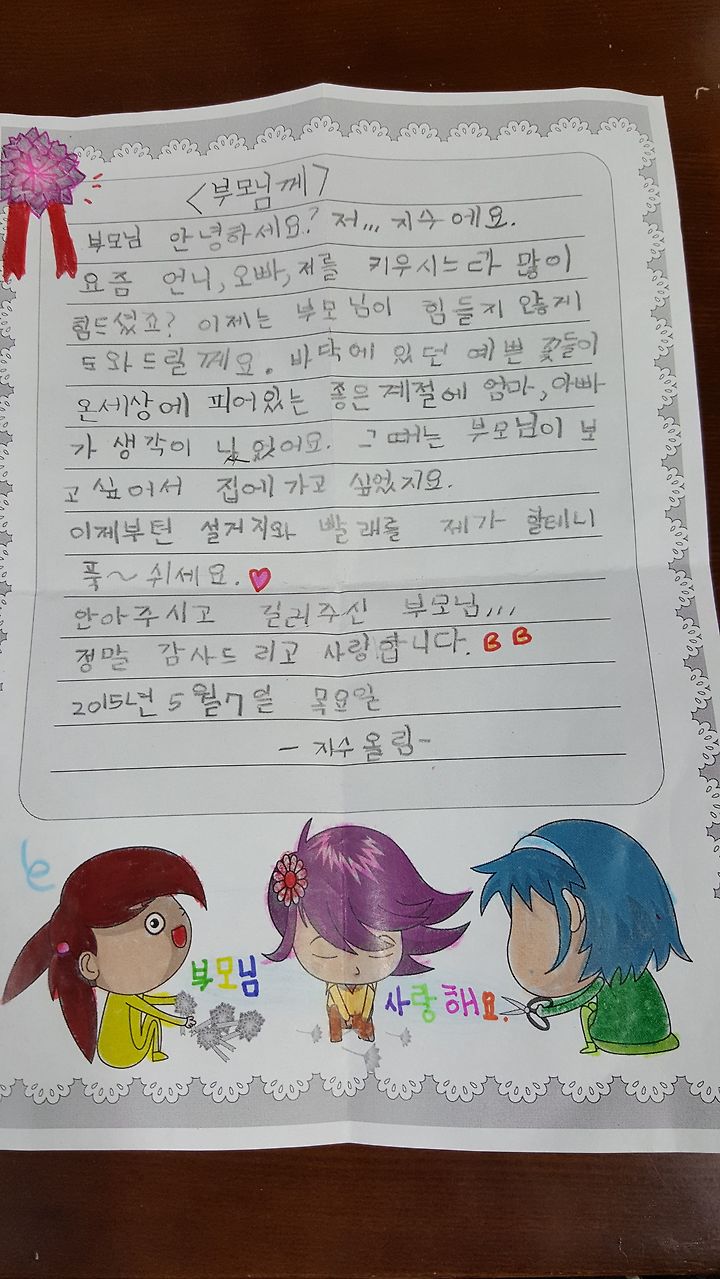 <부모님께>
부모님 안녕하세요? 저,,, 지수에요.
요즘 언니, 오빠, 저를 키우시느라 많이
힘드셨죠? 이제는 부모님이 힘들지 않게
도와드릴께요. 바닥에 있던 예쁜 꽃들이
온세상에 피어있는 좋은계절에 엄마, 아빠
가 생각이 났었어요. 그때는 부모님이 보
고 싶어서 집에 가고 싶었지요.
이제부턴 설거지와 빨래를 제가 할테니
푹~ 쉬세요.
안아주시고 길러주신 부모님,,,
정말 감사드리고 사랑합니다. B B
2015년 5월 7일 목요일
- 지수올림-
부모님
사랑해요.